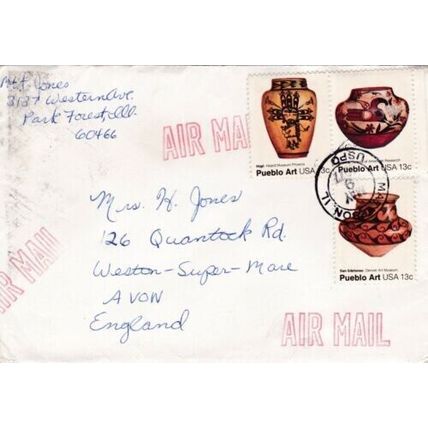 Jones
3137 Western Ave.
Park Forest, Ill.
60466
AIR MAIL
Hopi: Heard Museum Phoenix
Pueblo Art USA 13c
American Research
Pueblo Art USA 13c
USPO
San Ildefonso: Denver Art Museum
Pueblo Art USA 13c
Mrs. H. Jones
126 Quantock Rd.
Weston-Super-Mare
AVON
England
AIR MAIL
AIR MAIL